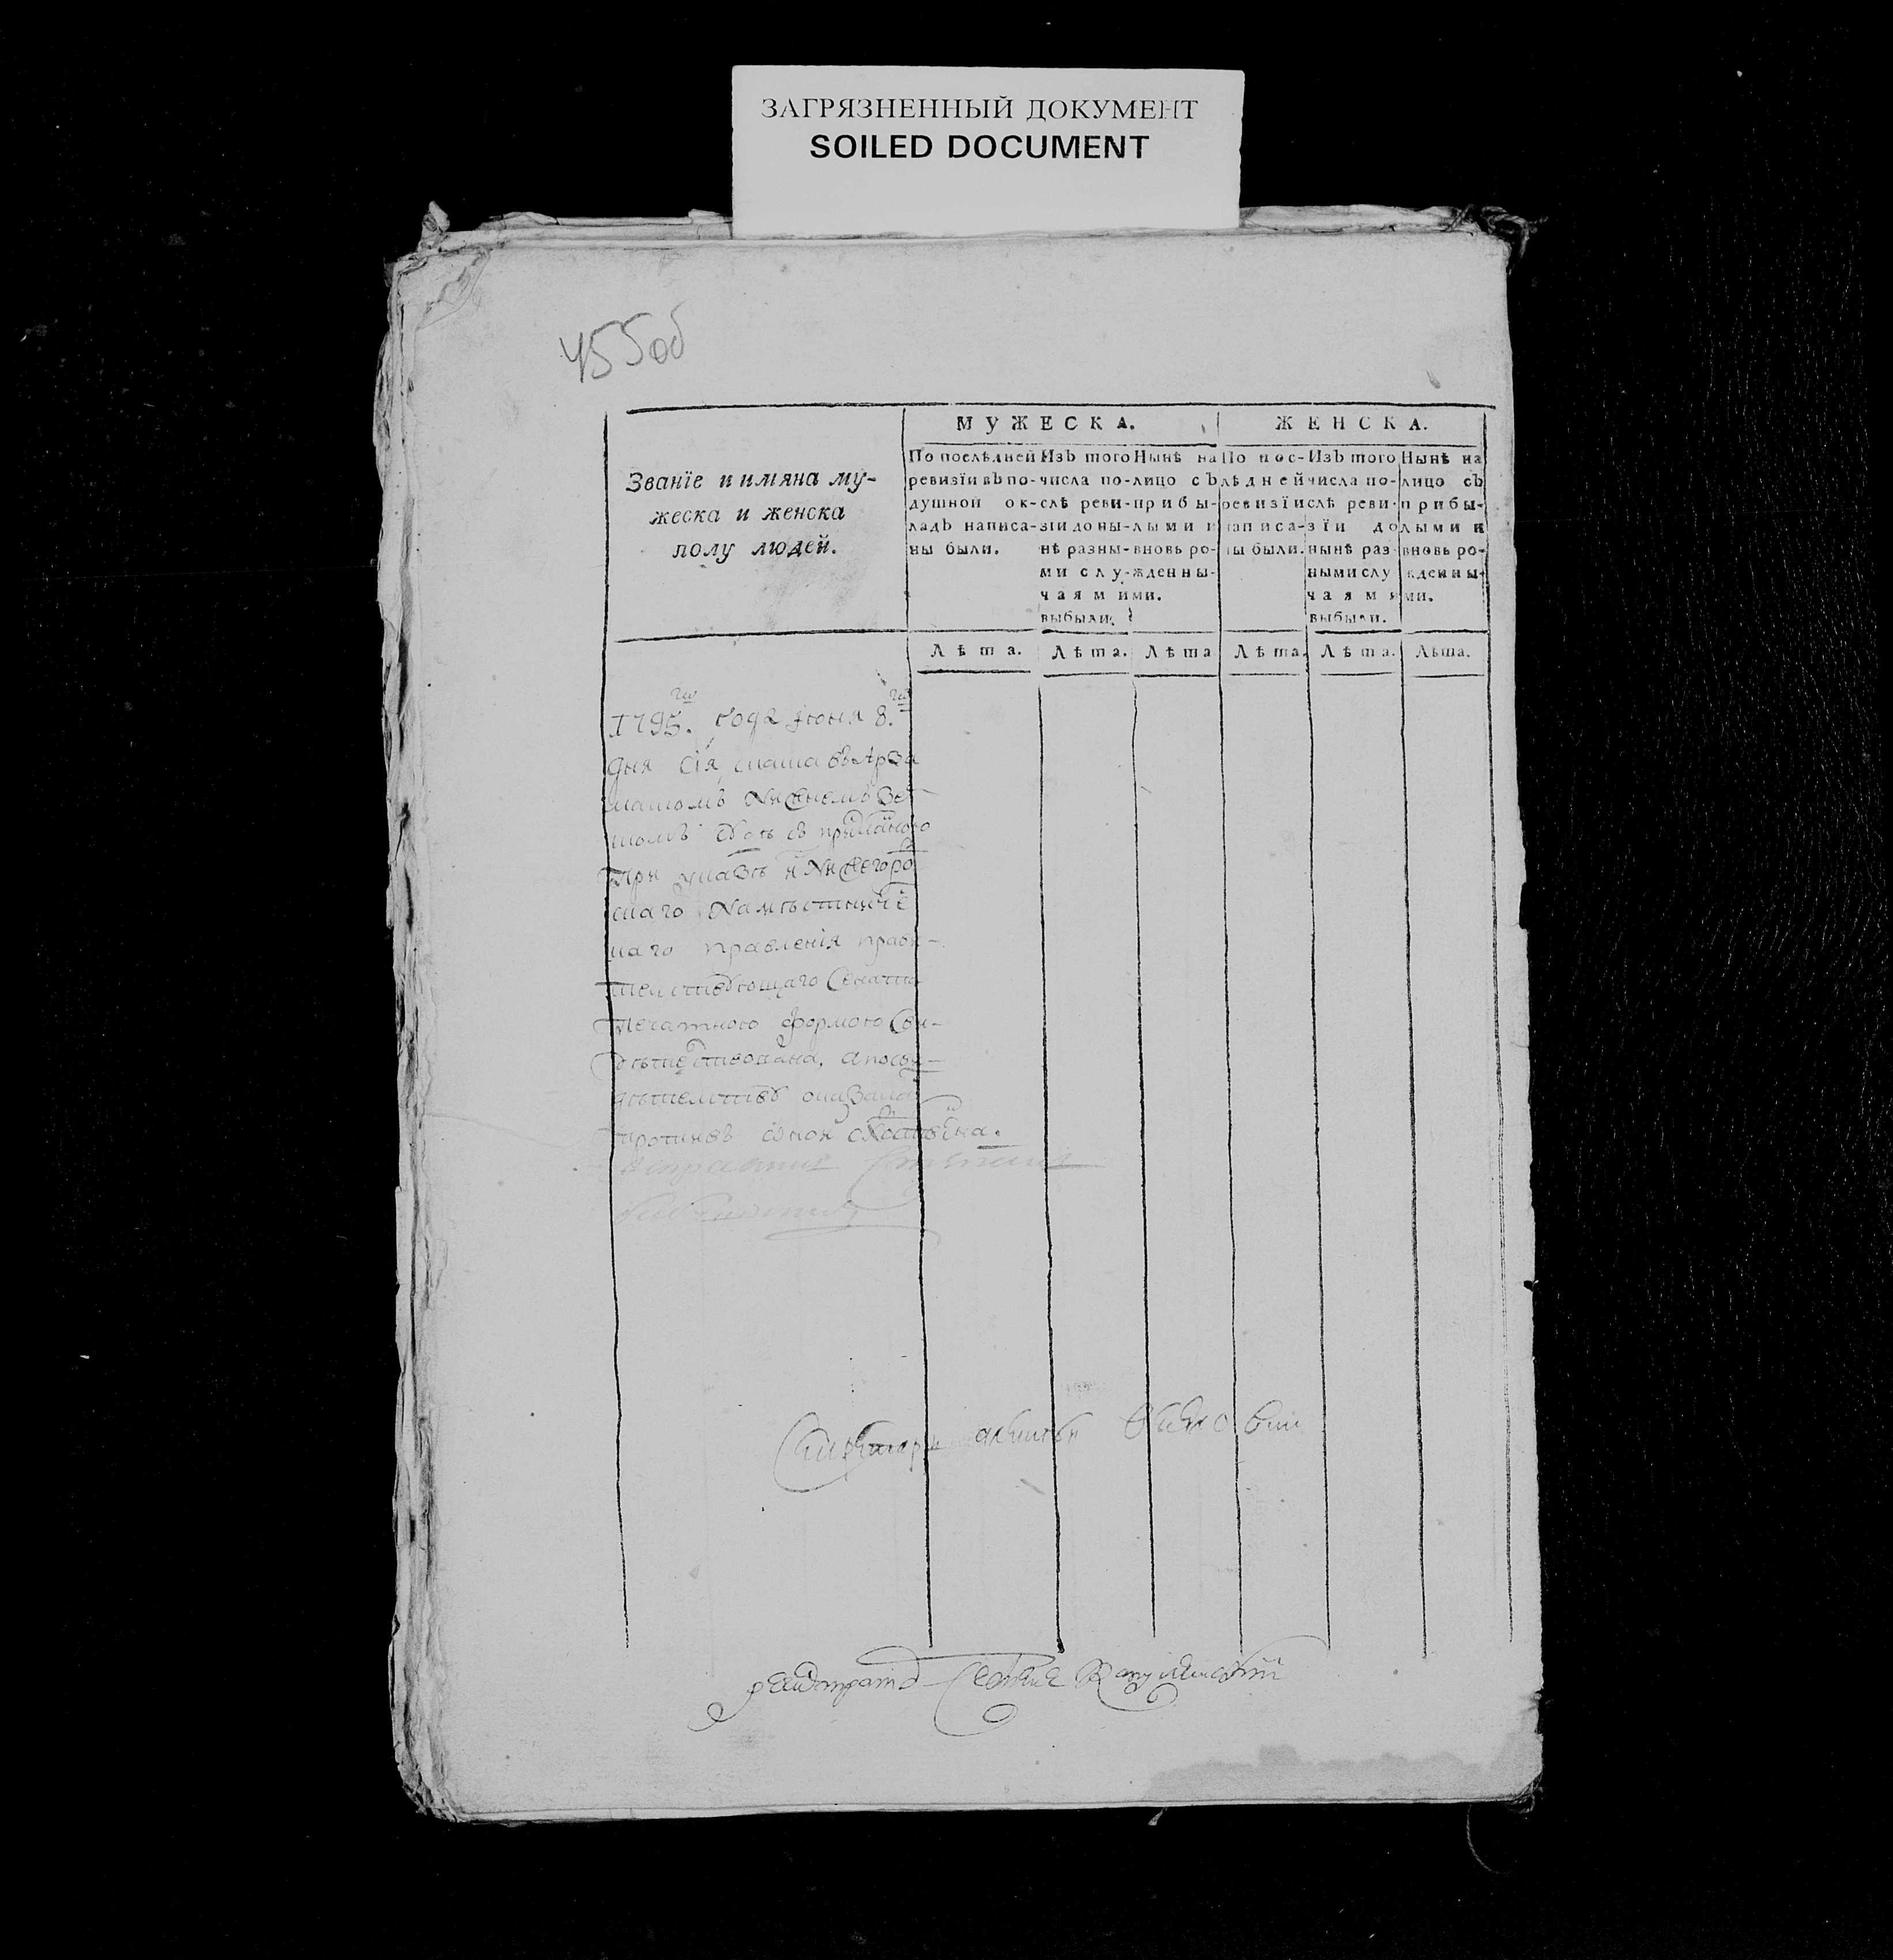 ЗАГРЯЗНЕННЫЙ ДОКУМЕНТ
SOILED DOCUMENT
455об
МУЖЕСКА.
ЖЕНСКА.
Званїе и имяна му-
жеска и женска
полу людей.
По послѣдней
ревизїи въ по-
душной ок-
ладъ написа-
ны были.
Изъ того
числа по-
слѣ реви-
зїи до ны-
нѣ разны-
ми слу-
чаями
выбыли.
Нынѣ на
лицо съ
прибы-
лыми и
вновь ро-
жденны-
ми.
По пос-
лѣдней
ревизїи
написа-
ны были.
Изъ того
числа по-
слѣ реви-
зїи до
нынѣ раз
ными слу
чаями
выбыли.
Нынѣ на
лицо съ
прибы-
лыми и
вновь ро-
жденны-
ми.
Лѣта.
Лѣта.
Лѣта
Лѣта.
Лѣта.
Лѣта.
1795.го года Июня 8.го
дня сїя скаска въ Арза
маскомъ Нижнемъ Зе
скомъ суде съ
При указе Нижегоро
скаго Намѣстниче
каго правленїя прави-
телствующаго Сената
печатною формою сви-
дѣте ствована, а посви-
дѣтелству оказала
противъ оной
Секретарь
регистраторъ